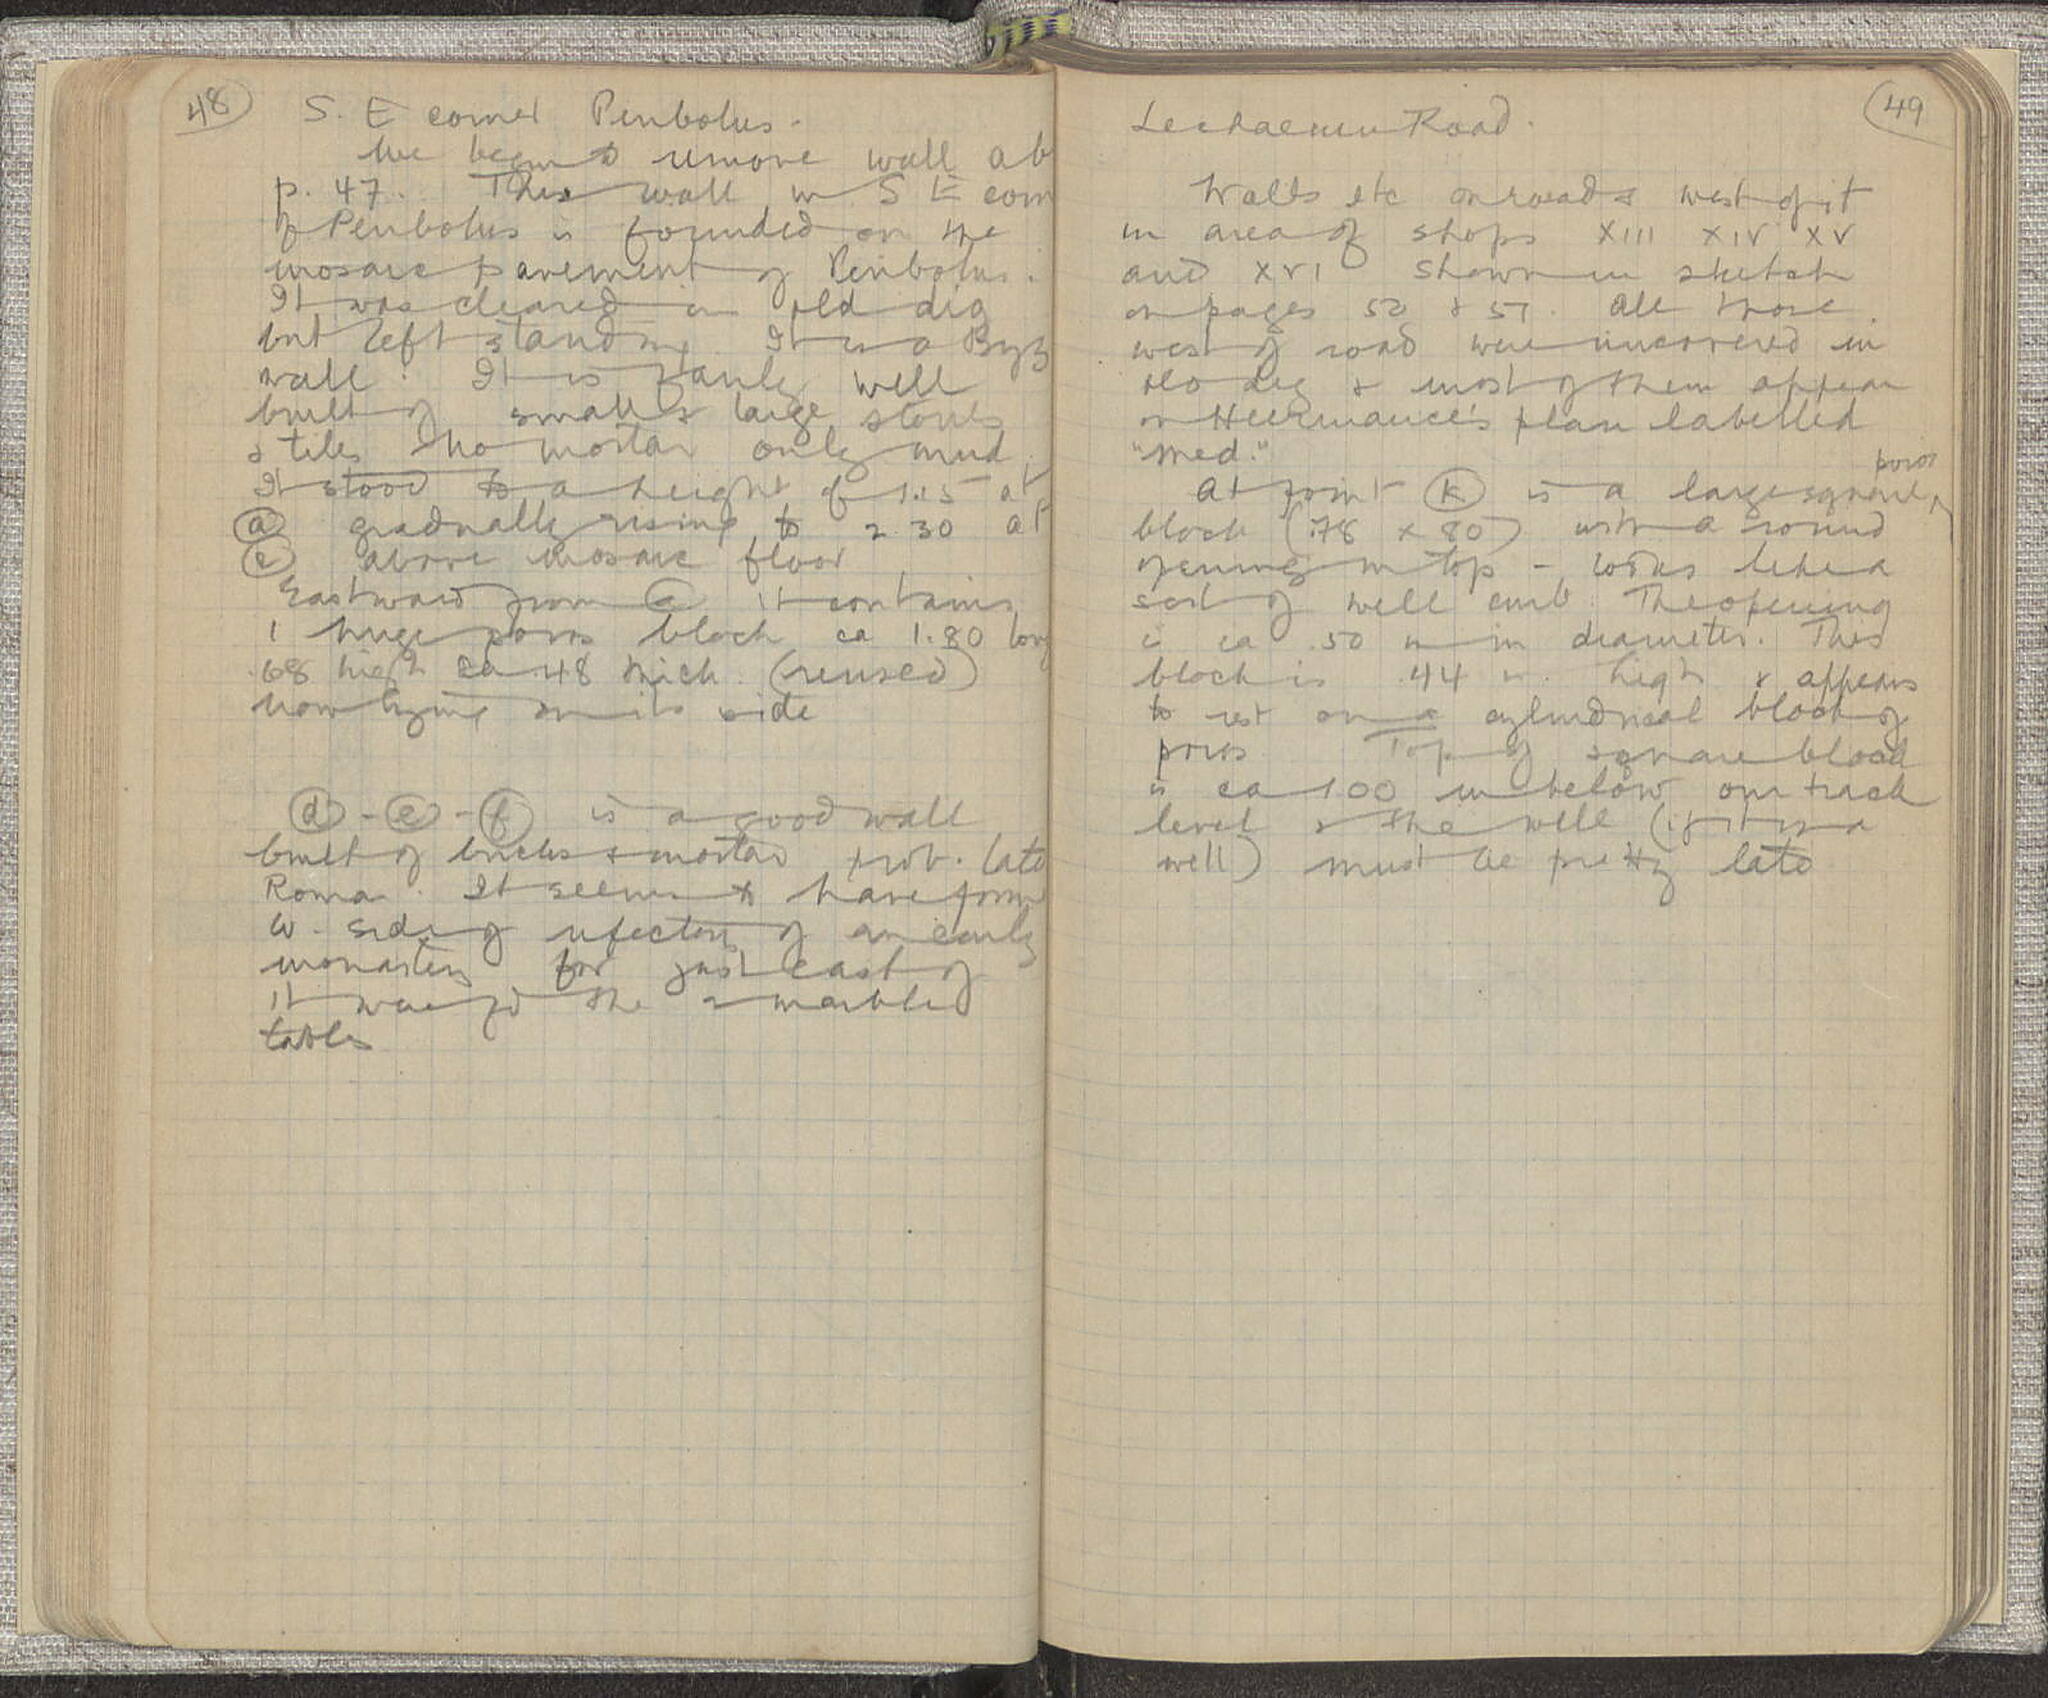 48
S. E corner Peribolus.
We began to remove wall ab
p. 47. This wall in S E corn
of Peribolus is founded on the
mosaic pavement of Peribolus.
It was cleared in old dig
but left standing. It is a Byz
wall. It is fairly well
built of small & large stones
& tiles no mortar only mud.
It stood to a height of 1.15 at
(a) gradually rising to 2.30 at
(c) above mosaic floor
Eastward from (a) it contains
1 huge poros block ca 1.80 long
.68 high ca .48 thick. (reused)
now lying on its side
(d) - (e) - (f) is a good wall
built of bricks & mortar prob. late
Roma. It seems to have form
W. side of refectory of an early
monastery for just east of
it were the 2 marble
tables
49
Lechaeum Road.
Walls etc on road & west of it
in area of shops XIII XIV XV
and XVI shown in sketch
on pages 50 & 51. All those
west of road were uncovered in
old dig & most of them appear
on Heermance's plan labelled
"Med."
poros
At point (K) is a large square
block (.78 x 80) with a round
opening in top - looks like a
sort of well curb. The opening
is ca .50 m in diameter. This
block is .44 m. high & appears
to rest on a cylindrical block of
poros Top of square block
is ca 1.00 m below our track
level & the well (if it is a
well) must be pretty late